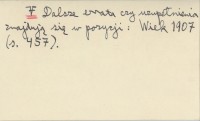 F Dalsze errata czy uzupełnienia
znajdują się w pozycji: Wiek 1907
(s. 457).